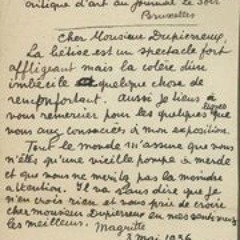 critique d'art au journal Le Soir
Bruxelles
Cher Monsieur Dupierreux,
La bêtise est un spectacle fort
affligeant mais la colère d'un
imbécile a quelque chose de
réconfortant. Aussi je tiens à
vous remercier pour les quelques lignes que
vous avez consacrées à mon exposition.
Tout le monde m'assure que vous
n'êtes qu'une vieille pompe à merde
et que vous ne méritez pas la moindre
attention. Il va sans dire que je
n'en crois rien et vous prie de croire
cher monsieur Dupierreux en mes sentiments
les meilleurs. Magritte
3 mai 1936